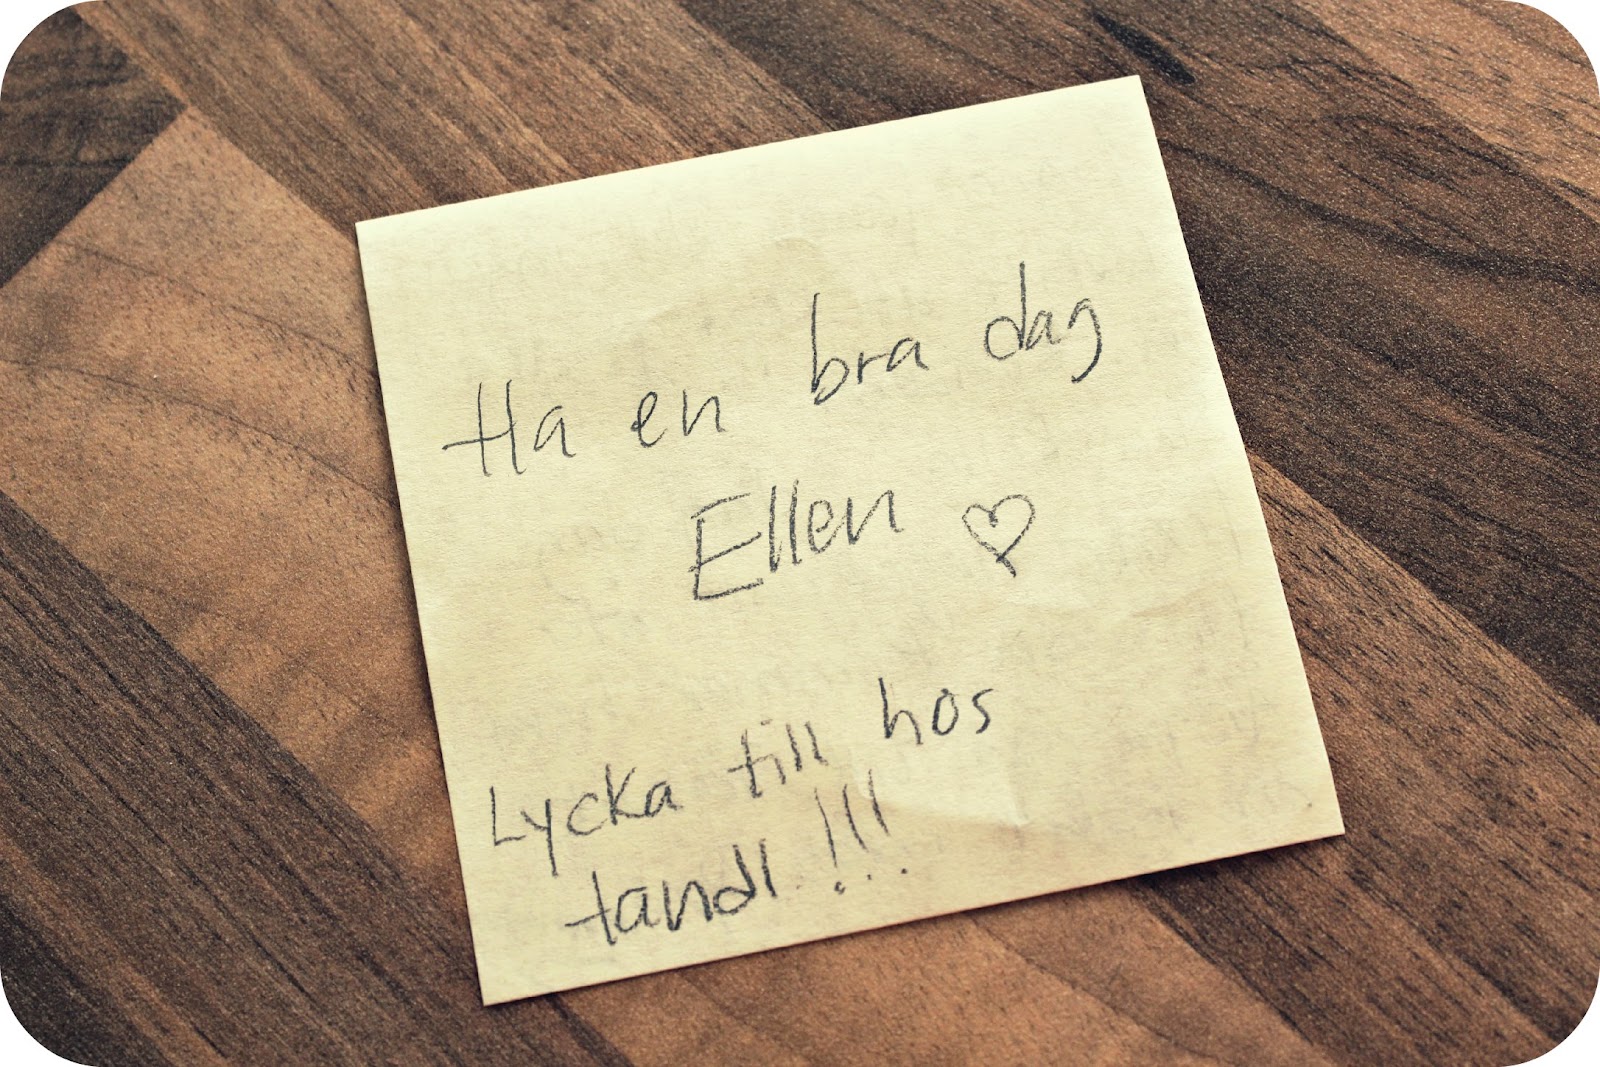 Ha en bra dag
Ellen ♡
Lycka till hos
tandl !!!